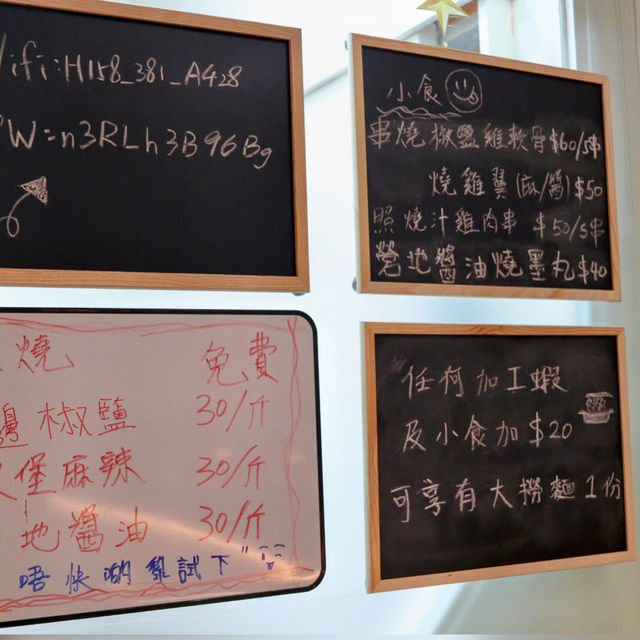 Wifi:H158_381_A428
PW=n3RLh3B96Bg
小食
串燒椒鹽雞軟骨$60/5串
燒雞翼(麻/鹽)$50
照燒汁雞肉串 $50/5串
營地醬油燒墨丸$40
燒 免費
椒鹽 30/斤
堡麻辣 30/斤
地醬油 30/斤
唔快啲黎試下
任何加工蝦
及小食加$20
可享有大撈麵1份